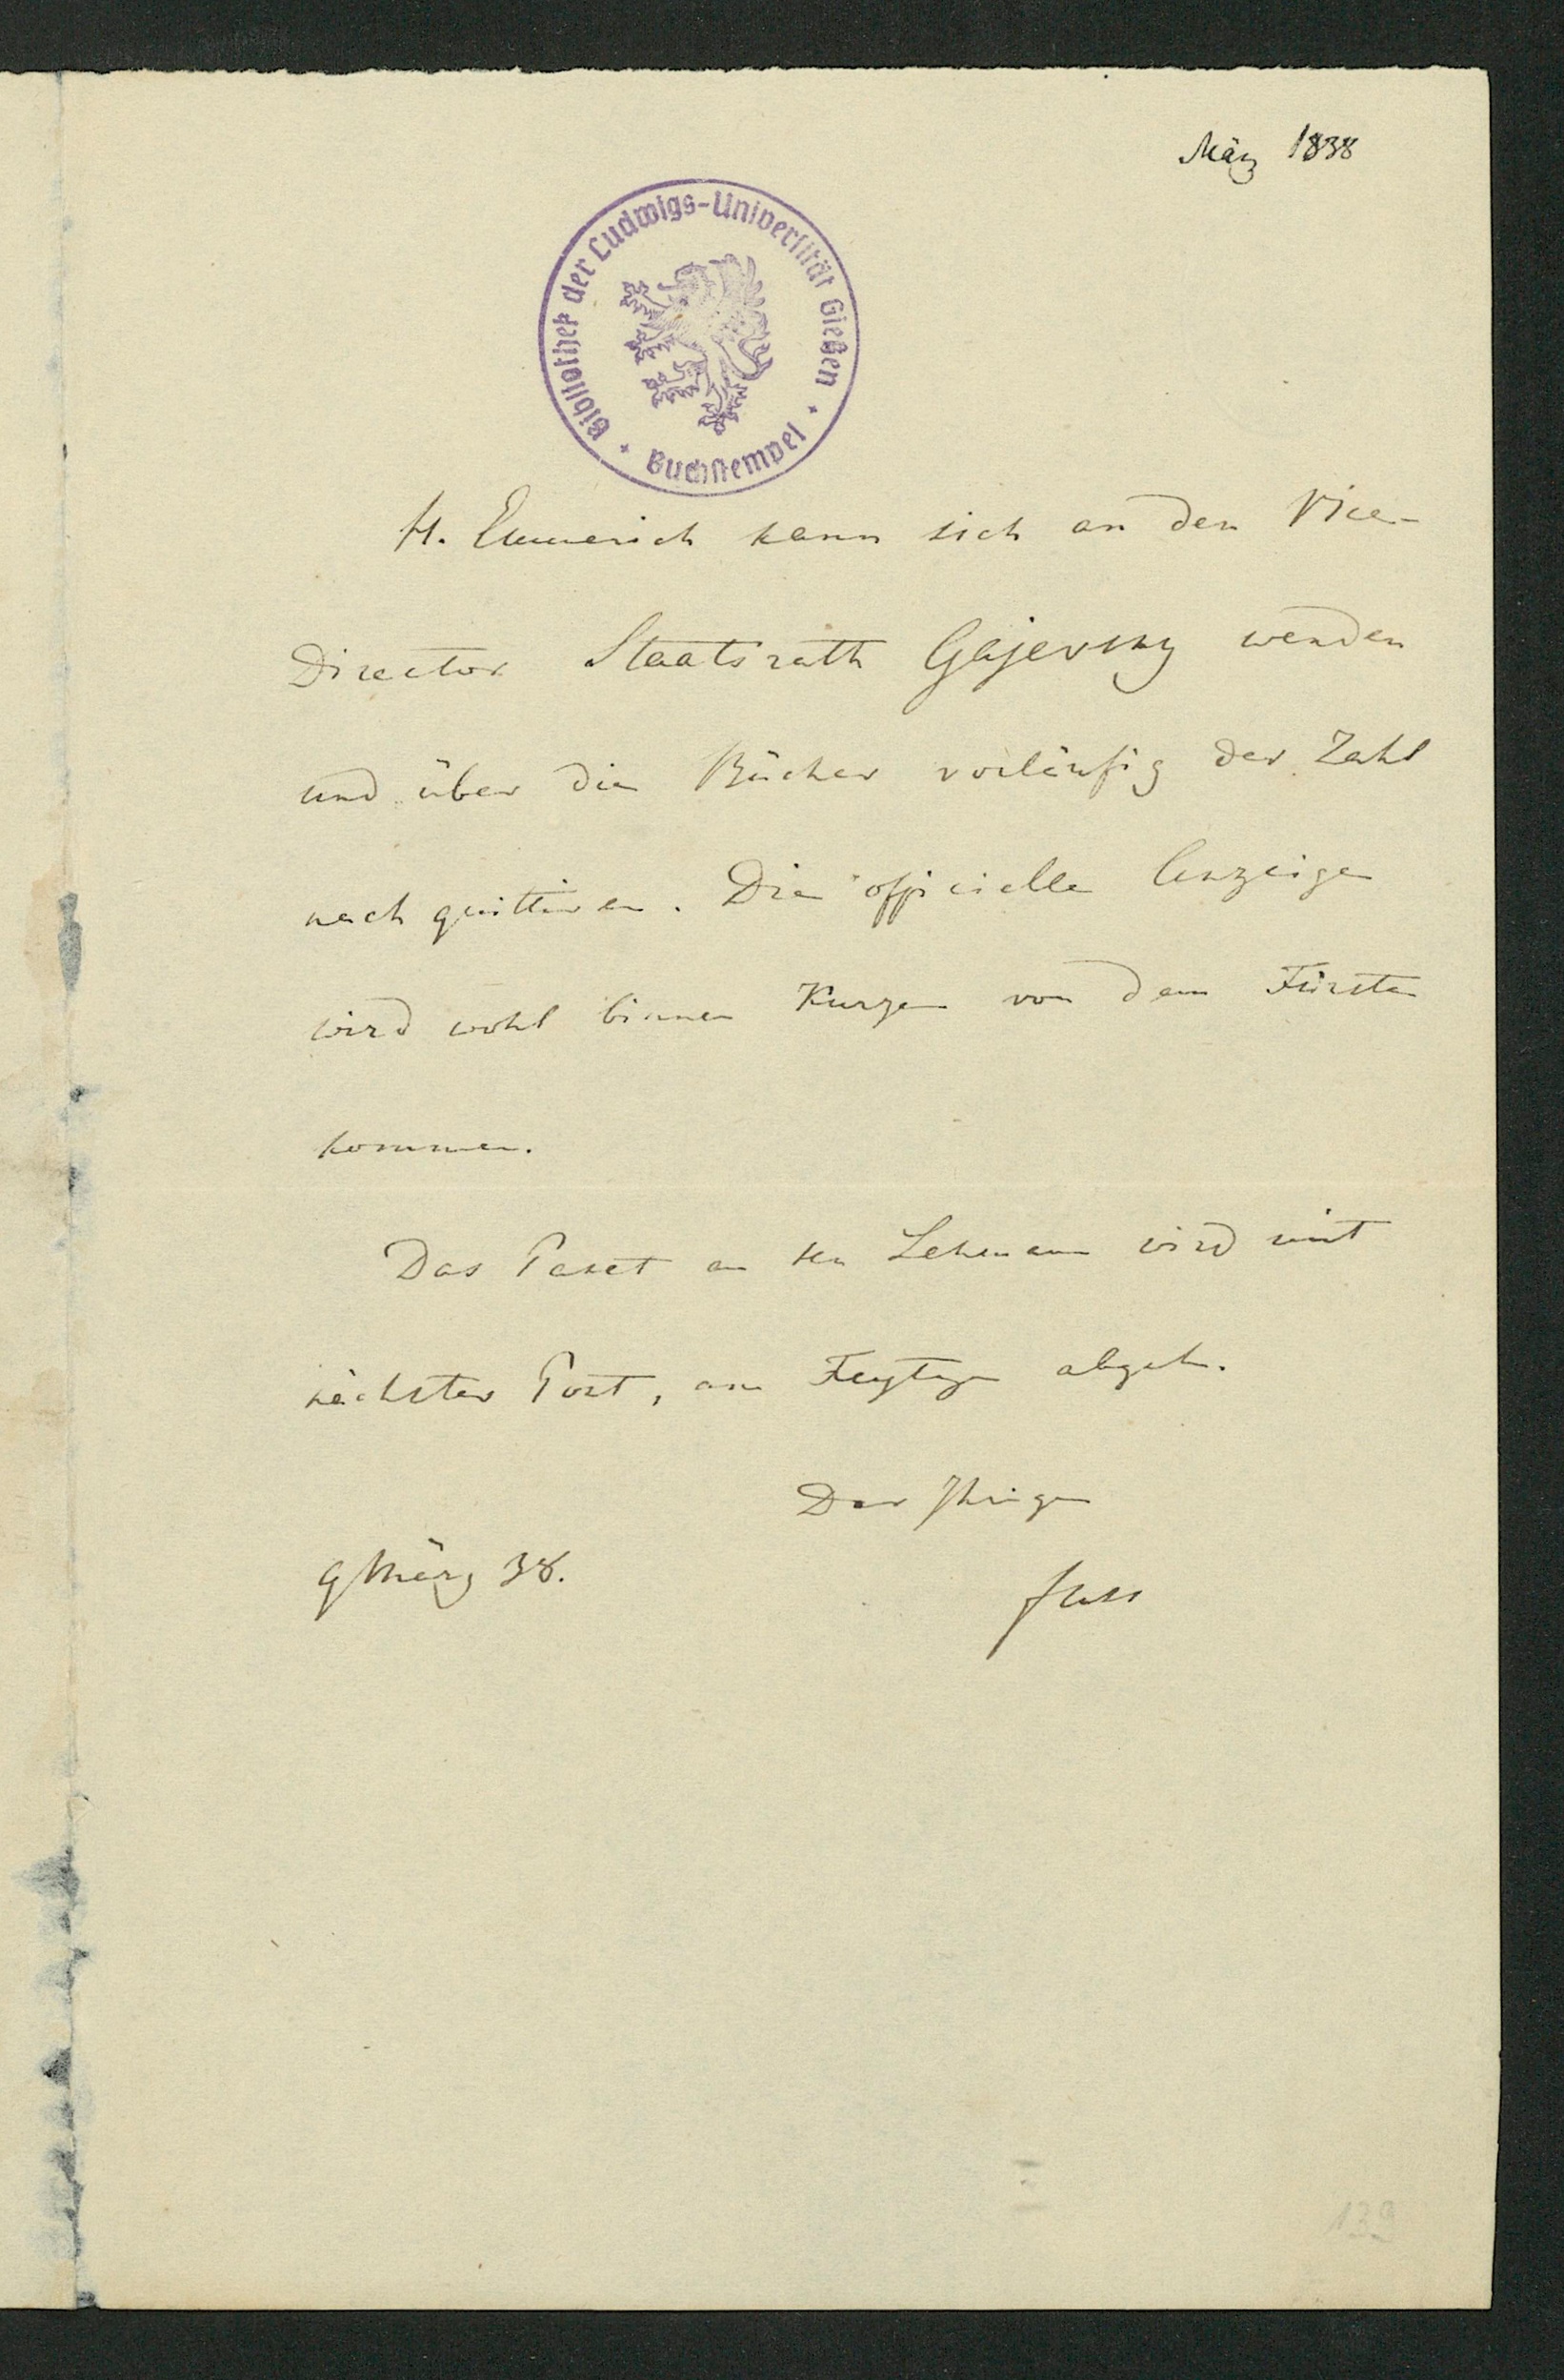 März 1838
Bibliothek der Ludwigs-Universität Gießen
Buchstempel
H. Emmerich kann sich an den Vice-
Director Staatsrath Gajevsky wenden
und über die Bücher vorläufig der Zahl
nach quittiren. Die officielle Anzeige
wird wohl binnen Kurzem von dem Fürsten
kommen.
Das Paket an Lehmann wird mit
nächster Post, am abgeh.
Der Ihrige
9 März 38.
Fuss
139